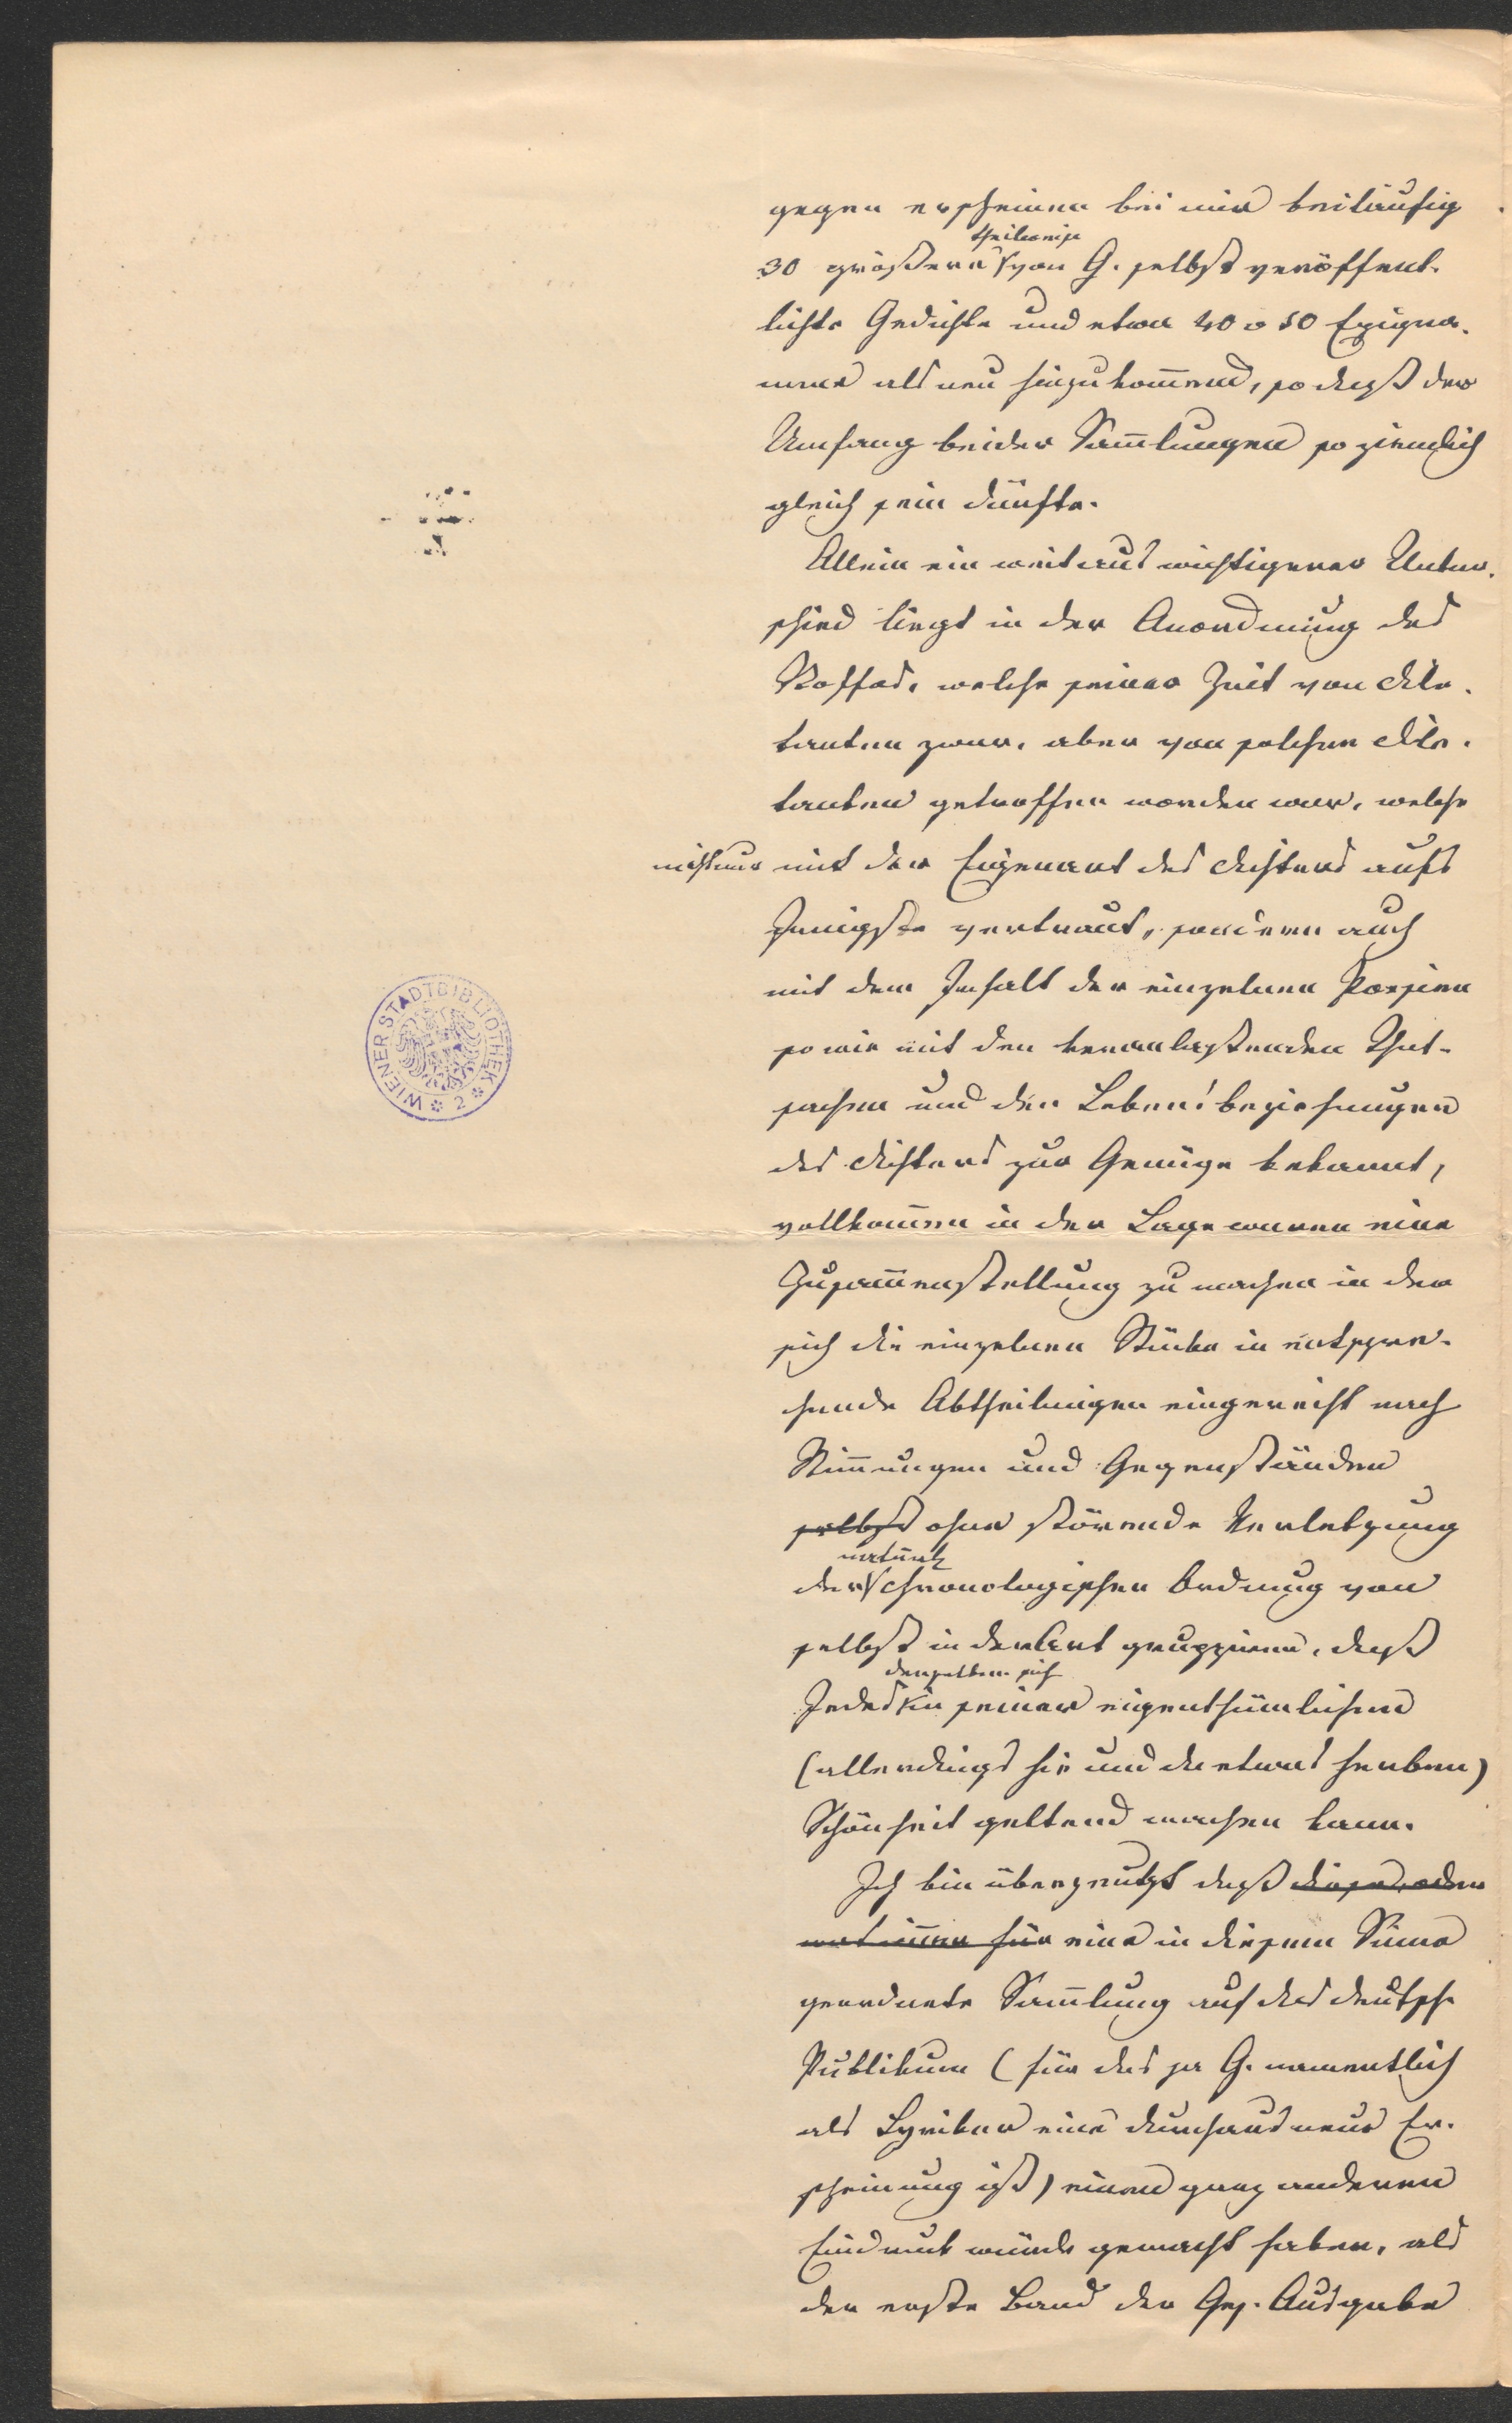 gegen erscheinen bei mir beiläufig
theilweise
30 größere von G. selbst veröffent-
lichte Gedichte und etwa 40 o 50 Epigra-
mme als neu hinzukom̅end, so daß der
Umfang beider Sam̅lungen so ziemlich
gleich sein dürfte.
Allein ein weitaus wichtigerer Unter-
schied liegt in der Anordnung des
Stoffes, welche seiner Zeit von Dile-
tanten zwar, aber von solchen Dile-
tanten getroffen worden war, welche
nicht nur mit der Eigenart des Dichters aufs
Innigste vertraut, sondern auch
mit dem Inhalt der einzelnen Poesien
so wie mit den veranlassenden That-
sachen und den Lebensbeziehungen
des Dichters zur Genüge bekannt,
vollkom̅en in der Lage waren eine
Zusam̅enstellung zu machen in der
sich die einzelnen Stücke in entspre-
chende Abtheilungen eingereiht nach
Stim̅ungen und Gegenständen
selbst ohne störende Verletzung
natürl
der chronologischen Ordnung von
selbst in der Art gruppieren, daß
derselben sich
Jedes in seiner eigenthümlichen
(allerdings hie und da etwas herben)
Schönheit geltend machen kann.
Ich bin überzeugt daß diese oder
eine in diesem Sinne
geordnete Sam̅lung auf das deutsche
Publikum (für das ja G. namentlich
als Lyriker eine durchaus neue Er-
scheinung ist) einen ganz anderen
Eindruck würde gemacht haben, als
der erste Band der Ges. Ausgabe
WIENER STADTBIBLIOTHEK 2